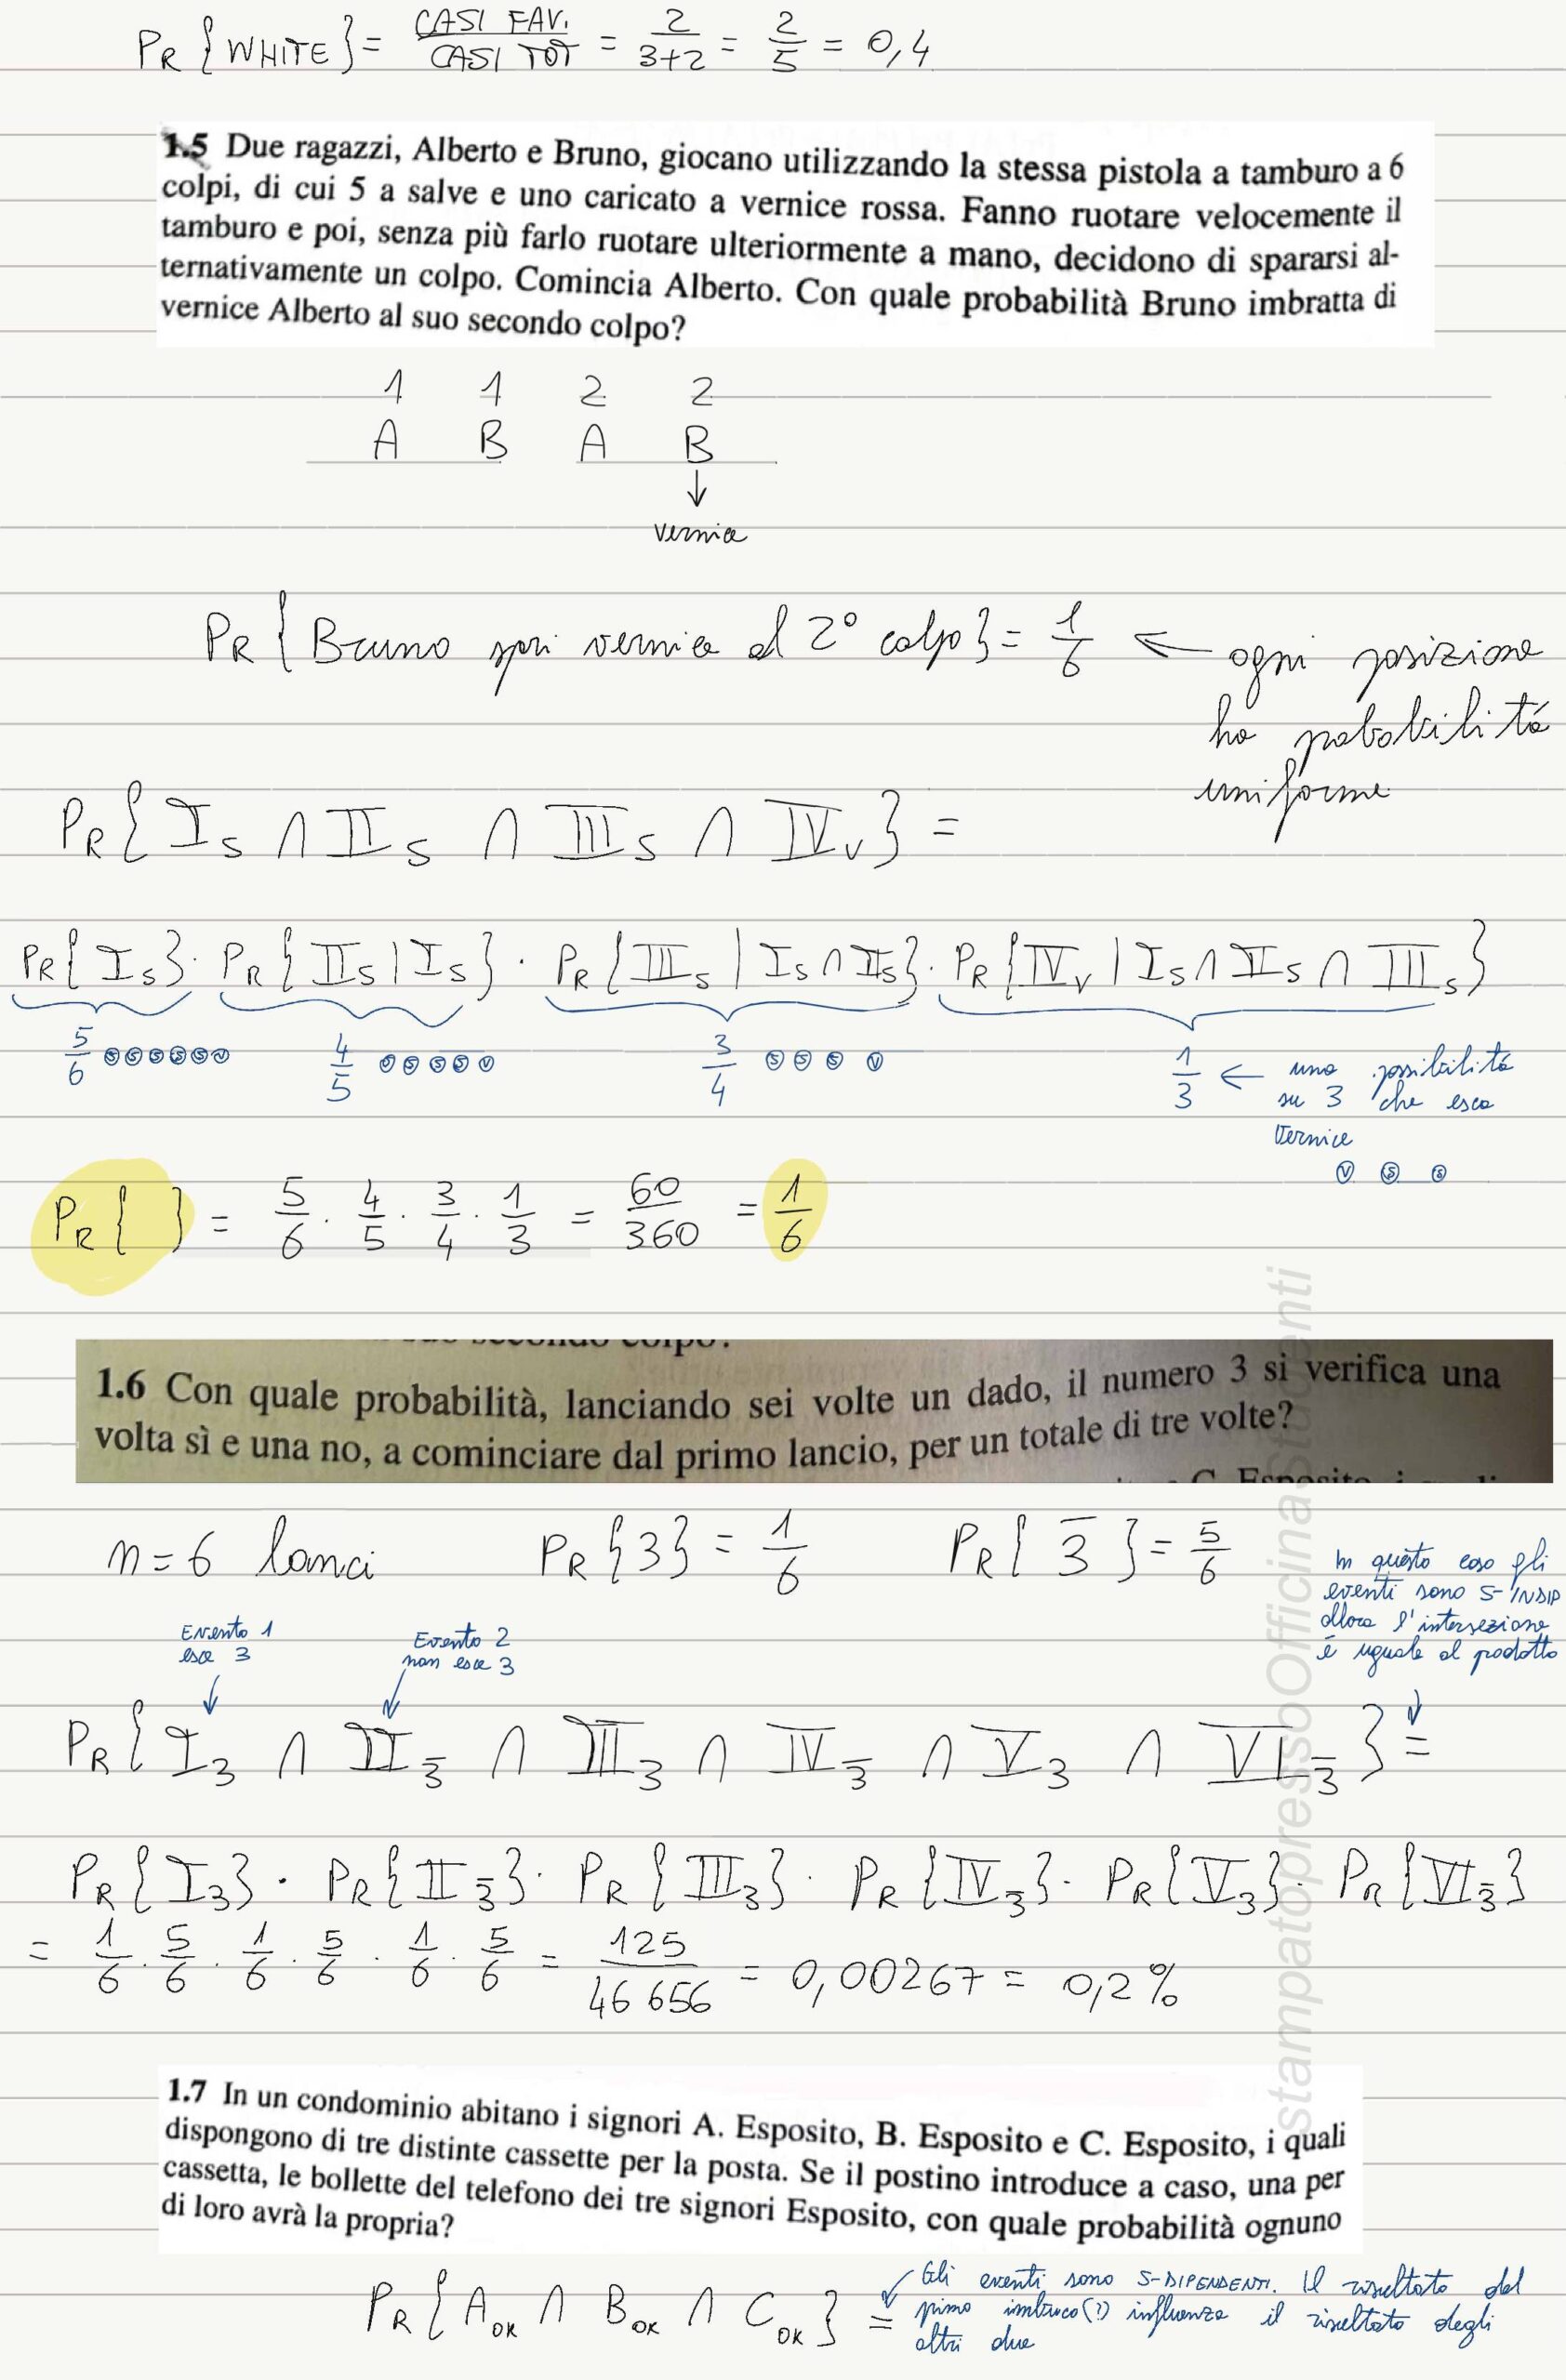 PR {WHITE} = CASI FAV. / CASI TOT = 2 / 3+2 = 2/5 = 0,4
1.5 Due ragazzi, Alberto e Bruno, giocano utilizzando la stessa pistola a tamburo a 6
colpi, di cui 5 a salve e uno caricato a vernice rossa. Fanno ruotare velocemente il
tamburo e poi, senza più farlo ruotare ulteriormente a mano, decidono di spararsi al-
ternativamente un colpo. Comincia Alberto. Con quale probabilità Bruno imbratta di
vernice Alberto al suo secondo colpo?
1 1 2 2
A B A B
↓
vernice
PR {Bruno spri vernice al 2° colpo} = 1/6 ← ogni posizione
ha probabilità
uniforme
PR {I_S ∩ II_S ∩ III_S ∩ IV_V} =
PR{I_S} · PR{II_S | I_S} · PR{III_S | I_S ∩ II_S} · PR{IV_V | I_S ∩ II_S ∩ III_S}
5/6 Ⓢ Ⓢ Ⓢ Ⓢ Ⓢ Ⓥ 4/5 Ⓢ Ⓢ Ⓢ Ⓢ Ⓥ 3/4 Ⓢ Ⓢ Ⓢ Ⓥ 1/3 ← una possibilità
su 3 che esca
Vernice
Ⓥ Ⓢ Ⓢ
PR{ } = 5/6 · 4/5 · 3/4 · 1/3 = 60/360 = 1/6
1.6 Con quale probabilità, lanciando sei volte un dado, il numero 3 si verifica una
volta sì e una no, a cominciare dal primo lancio, per un totale di tre volte?
n = 6 lanci PR{3} = 1/6 PR{3̅} = 5/6
In questo caso gli
eventi sono S-INDIP
allora l'intersezione
è uguale al prodotto
Evento 1
esce 3
Evento 2
non esce 3
PR{I_3 ∩ II_3̅ ∩ III_3 ∩ IV_3̅ ∩ V_3 ∩ VI_3̅} =
PR{I_3} · PR{II_3̅} · PR{III_3} · PR{IV_3̅} · PR{V_3} · PR{VI_3̅}
= 1/6 · 5/6 · 1/6 · 5/6 · 1/6 · 5/6 = 125/46 656 = 0,00267 = 0,2%
1.7 In un condominio abitano i signori A. Esposito, B. Esposito e C. Esposito, i quali
dispongono di tre distinte cassette per la posta. Se il postino introduce a caso, una per
cassetta, le bollette del telefono dei tre signori Esposito, con quale probabilità ognuno
di loro avrà la propria?
PR{A_OK ∩ B_OK ∩ C_OK} =
Gli eventi sono S-DIPENDENTI. Il risultato del
primo imbuco(?) influenza il risultato degli
altri due
stampatopressoOfficinaStudenti